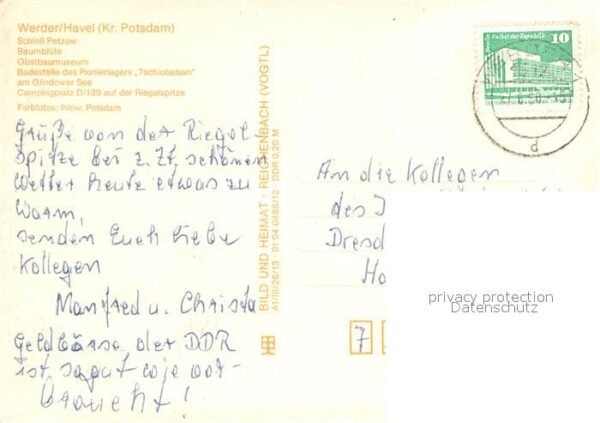 Werder/Havel (Kr. Potsdam)
Schloß Petzow
Baumblüte
Obstbaumuseum
Badestelle des Pionierlagers „Tschlobalsan"
am Glindower See
Campingplatz D/139 auf der Riegelspitze
Farbfotos: Ihlow, Potsdam
Grüße von der Riegel-
spitze bei z. Zt. schönem
Wetter heute etwas zu
warm,
senden Euch liebe
Kollegen
Manfred u. Christa
Geldbörse der DDR
ist so gut wie
braucht!
BILD UND HEIMAT · REICHENBACH (VOGTL)
A1/III/26/13 · 01 04 0485/12 · DDR 0,20 M
Palast der Republik
10
DDR
d
An die Kollegen
des
Dresd
Ho
7
privacy protection
Datenschutz